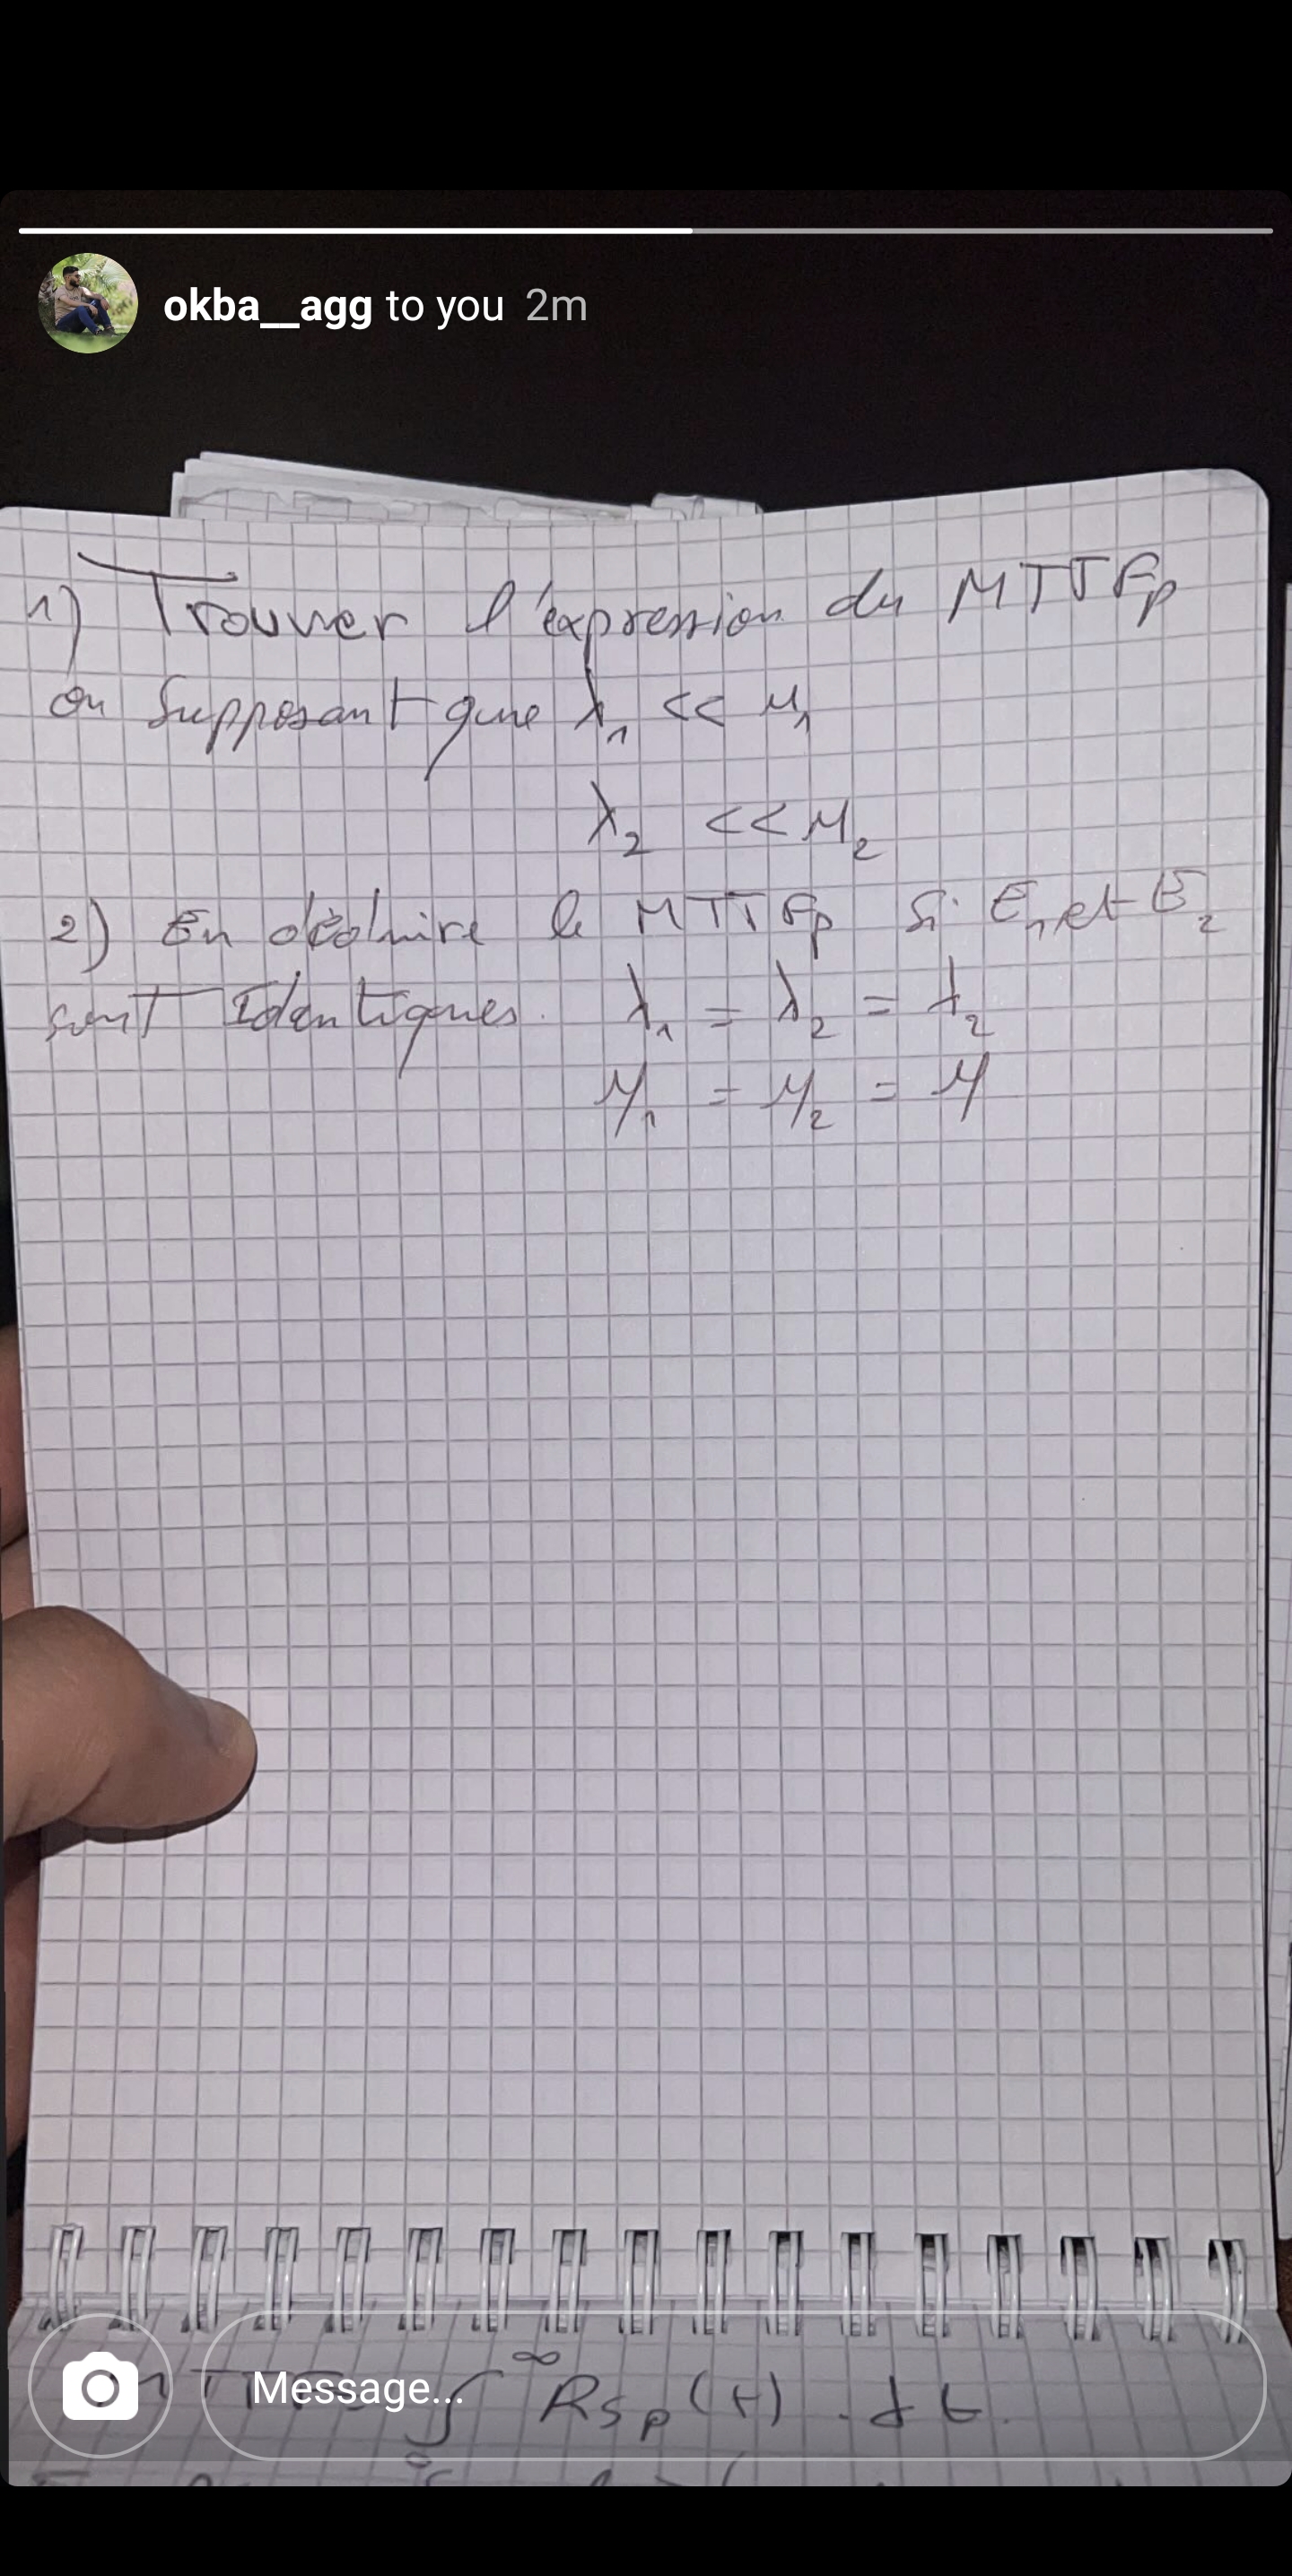 okba__agg to you 2m
1) Trouver l'expression du MTTFp
on Supposant que λ₁ << μ₁
λ₂ << μ₂
2) En déduire le MTTFp Si E₁ et E₂
sont Identiques. λ₁ = λ₂ = λ₂
μ₁ = μ₂ = μ
Message...
∫₀^∞ Rsp(t) . dt.